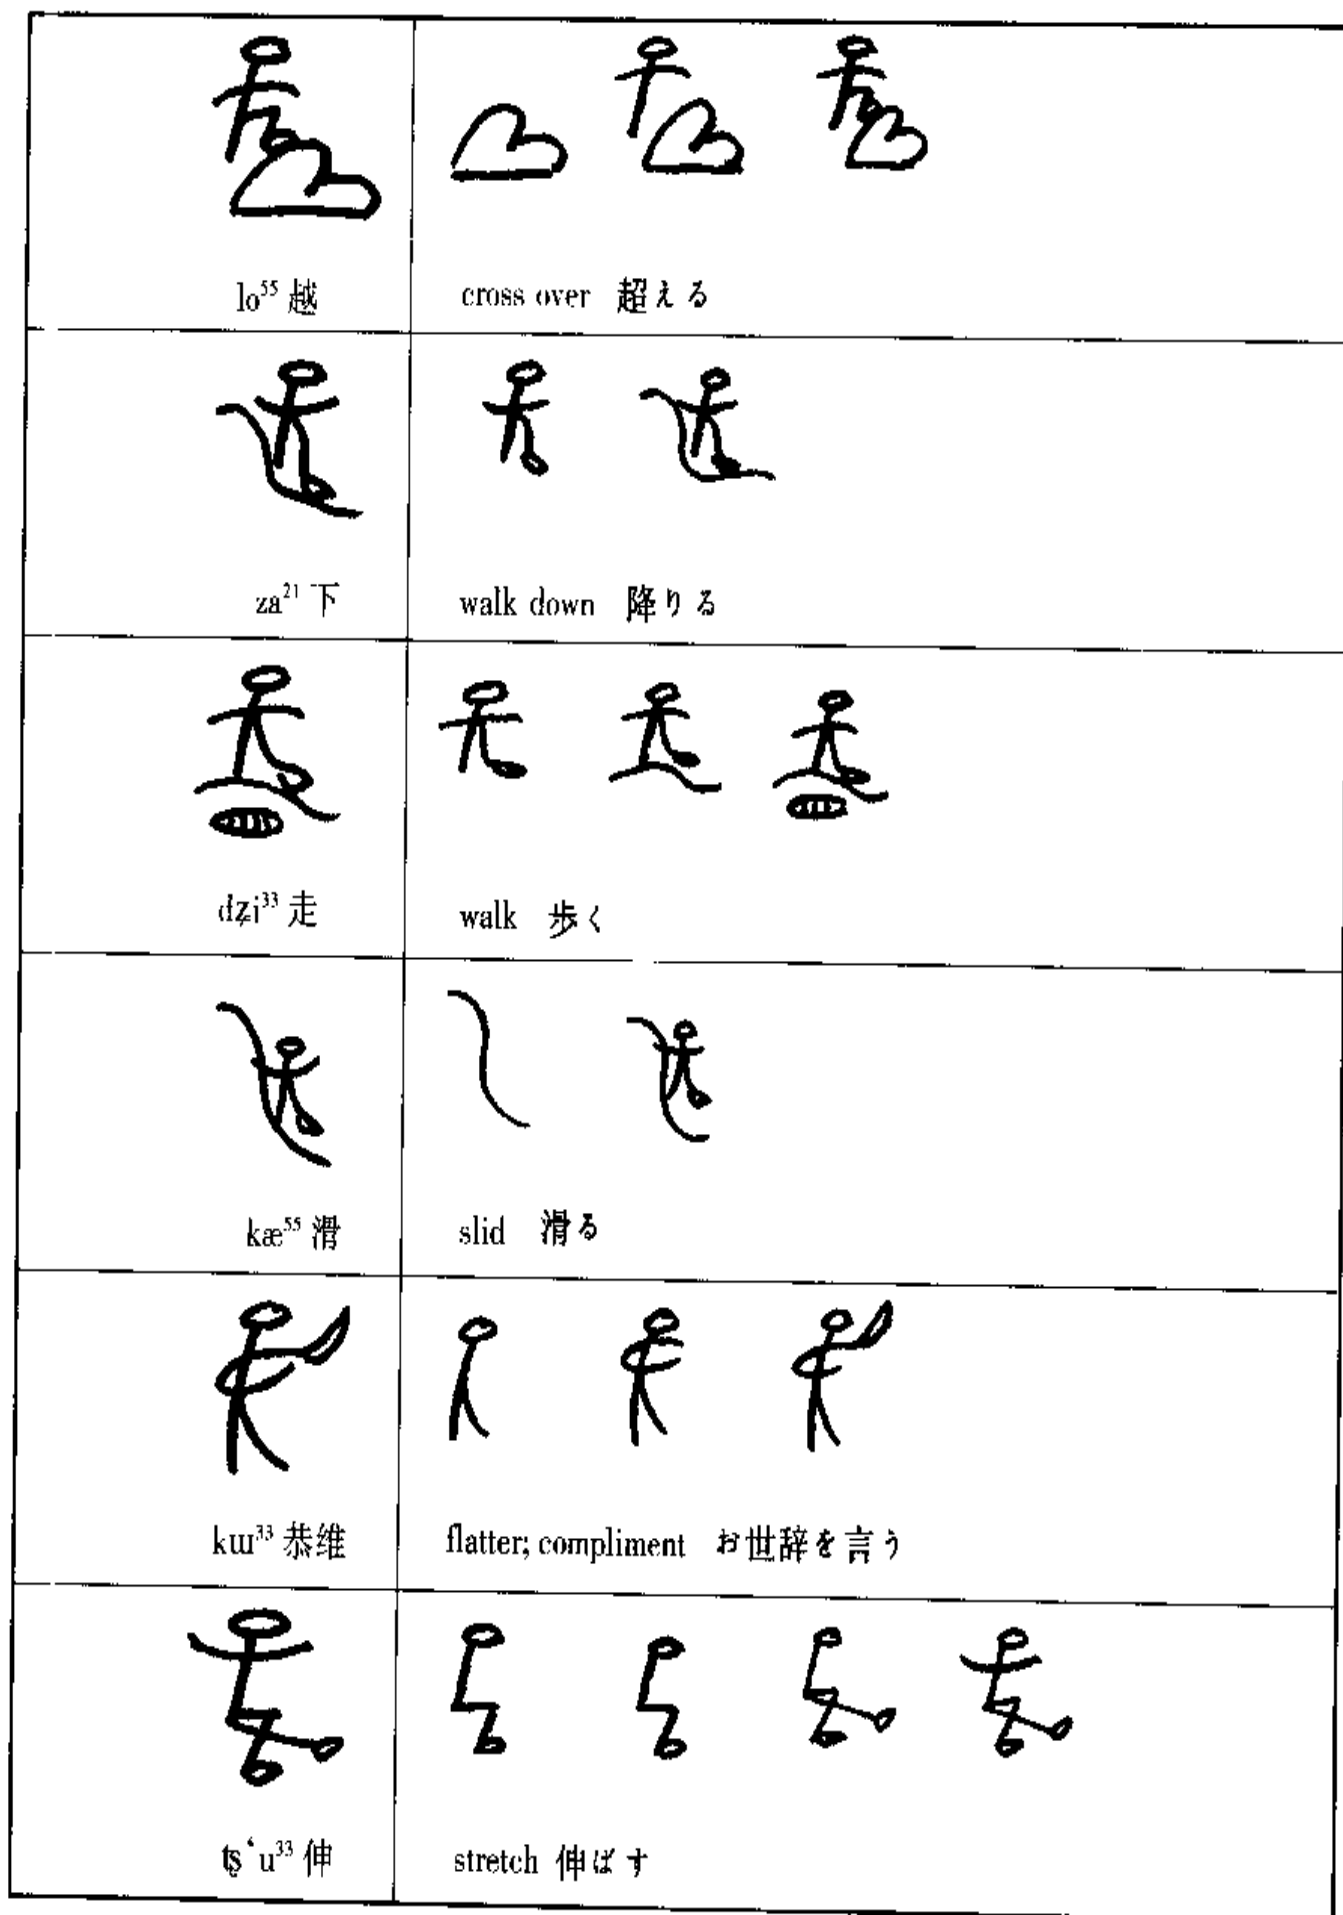 lo⁵⁵ 越
cross over 超える
za²¹ 下
walk down 降りる
dʐi³³ 走
walk 歩く
kæ⁵⁵ 滑
slid 滑る
kɯ³³ 恭维
flatter; compliment お世辞を言う
tʂ‘u³³ 伸
stretch 伸ばす